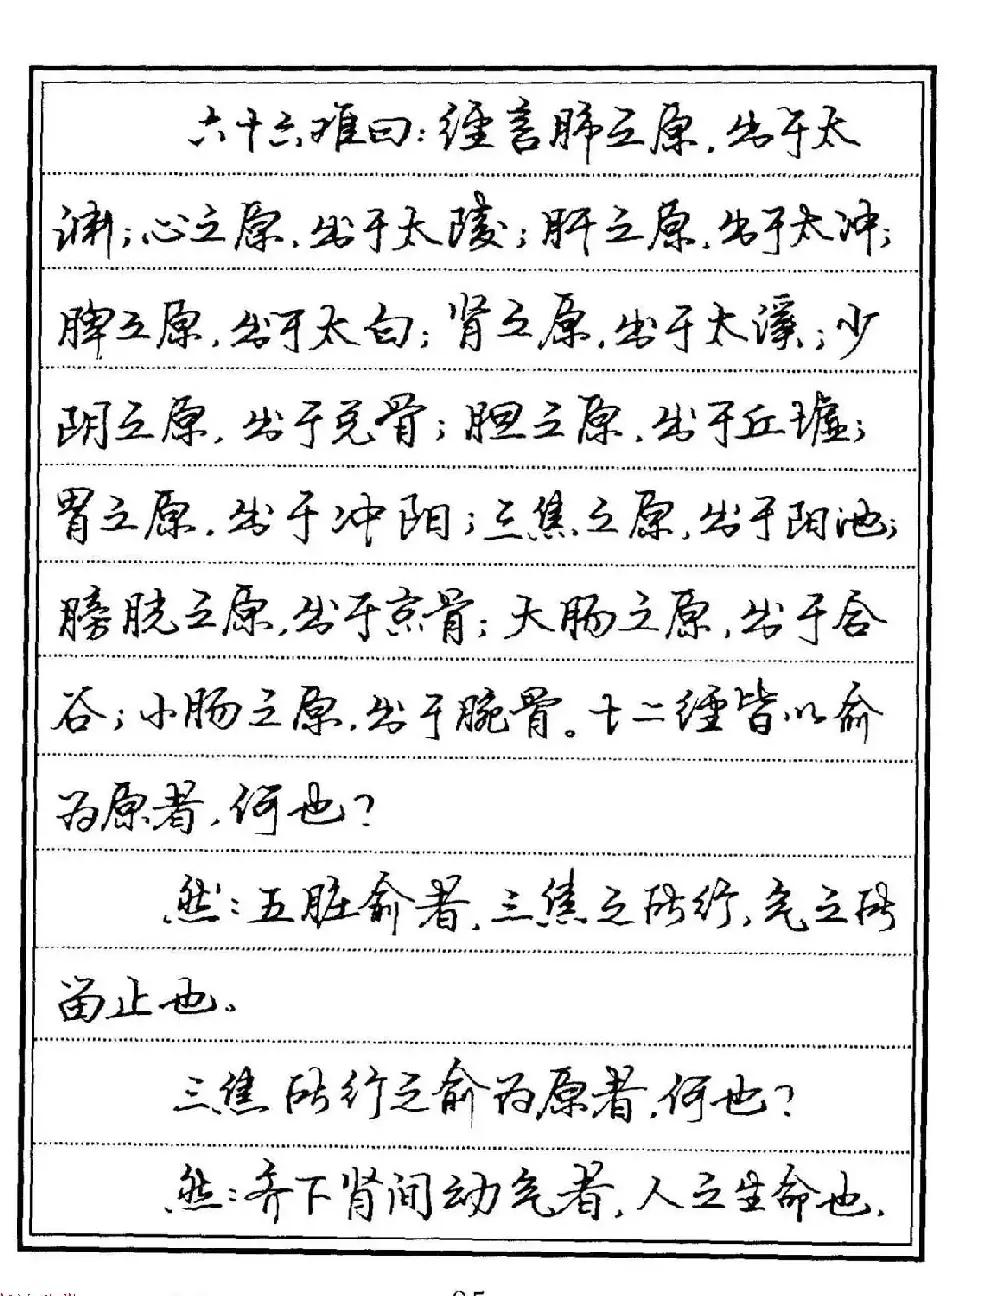 六十六难曰：经言肺之原，出于太
渊；心之原，出于太陵；肝之原，出于太冲；
脾之原，出于太白；肾之原，出于太溪；少
阴之原，出于兑骨；胆之原，出于丘墟；
胃之原，出于冲阳；三焦之原，出于阳池；
膀胱之原，出于京骨；大肠之原，出于合
谷；小肠之原，出于腕骨。十二经皆以俞
为原者，何也？
然：五脏俞者，三焦之所行，气之所
留止也。
三焦所行之俞为原者，何也？
然：齐下肾间动气者，人之生命也，